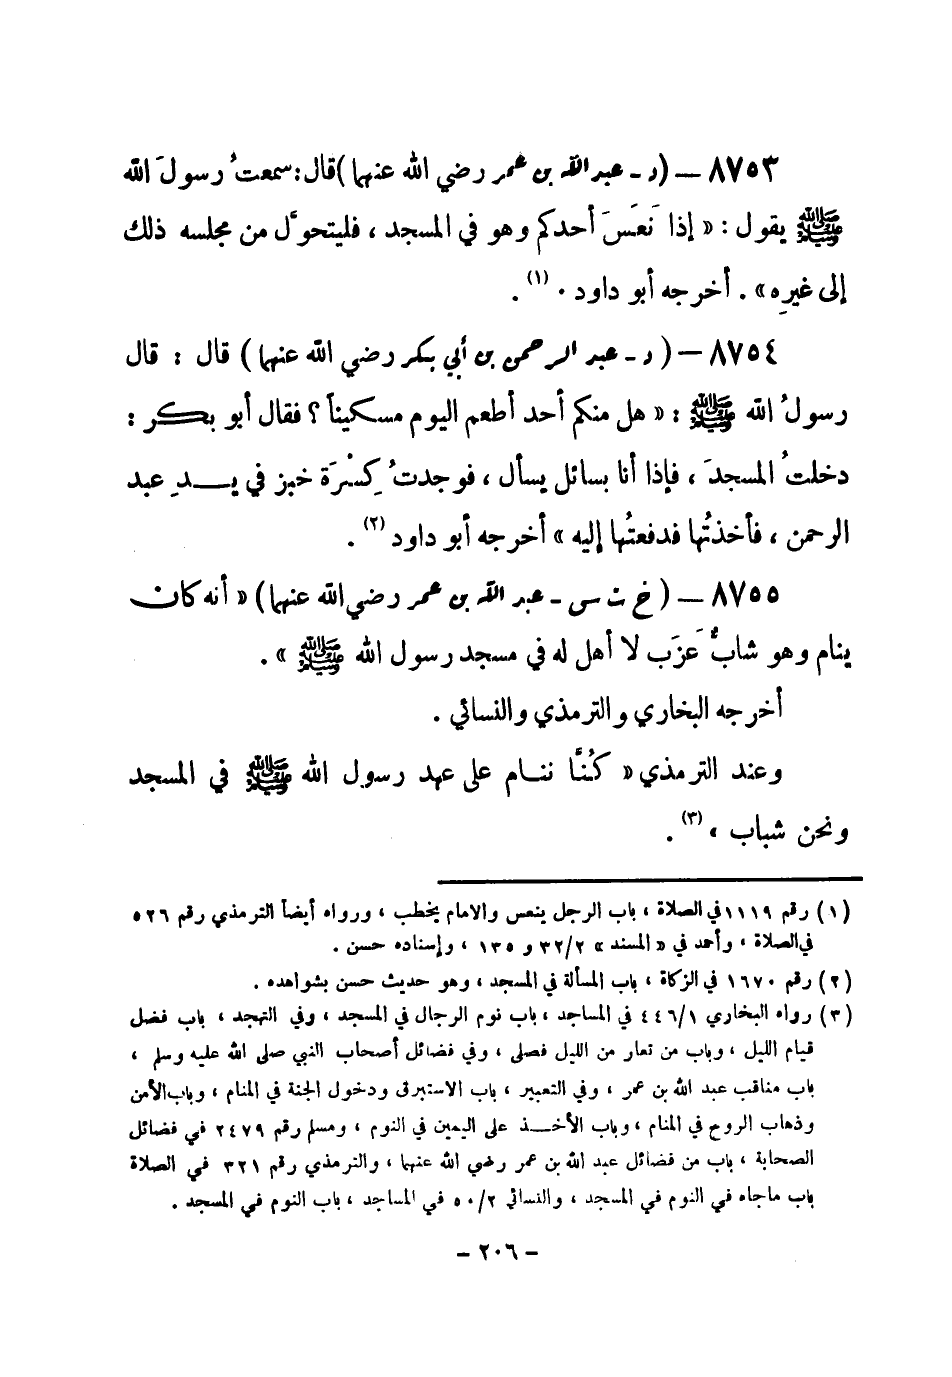 ٨٧٥٣ — ( د ـ عبد الله بن عمر رضي الله عنهما ) قال : سمعتُ رسولَ الله
ﷺ يقول : « إذا نَعَسَ أحدكم وهو في المسجد ، فليتحوَّل من مجلسه ذلك
إلى غيرِه » . أخرجه أبو داود . (١) .
٨٧٥٤ — ( د ـ عبد الرحمن بن أبي بكر رضي الله عنهما ) قال : قال
رسولُ الله ﷺ : « هل منكم أحد أطعم اليوم مسكيناً ؟ فقال أبو بكر :
دخلتُ المسجدَ ، فإذا أنا بسائل يسأل ، فوجدتُ كِسْرَة خبز في يدِ عبد
الرحمن ، فأخذتُها فدفعتُها إليه » أخرجه أبو داود (٢) .
٨٧٥٥ — ( خ ت س ـ عبد الله بن عمر رضي الله عنهما ) « أنه كان
ينام وهو شابٌّ عَزَب لا أهل له في مسجد رسول الله ﷺ » .
أخرجه البخاري والترمذي والنسائي .
وعند الترمذي « كُنَّا ننام على عهد رسول الله ﷺ في المسجد
ونحن شباب » (٣) .
(١) رقم ١١١٩ في الصلاة ، باب الرجل ينعس والامام يخطب ، ورواه أيضاً الترمذي رقم ٥٢٦
في الصلاة ، وأحمد في « المسند » ٣٢/٢ و ١٣٥ ، وإسناده حسن .
(٢) رقم ١٦٧٠ في الزكاة ، باب المسألة في المسجد ، وهو حديث حسن بشواهده .
(٣) رواه البخاري ٤٤٦/١ في المساجد ، باب نوم الرجال في المسجد ، وفي التهجد ، باب فضل
قيام الليل ، وباب من تعار من الليل فصلى ، وفي فضائل أصحاب النبي صلى الله عليه وسلم ،
باب مناقب عبد الله بن عمر ، وفي التعبير ، باب الاستبرق ودخول الجنة في المنام ، وباب الأمن
وذهاب الروع في المنام ، وباب الأخذ على اليمين في النوم ، ومسلم رقم ٢٤٧٩ في فضائل
الصحابة ، باب من فضائل عبد الله بن عمر رضي الله عنهما ، والترمذي رقم ٣٢١ في الصلاة
باب ماجاء في النوم في المسجد ، والنسائي ٥٠/٢ في المساجد ، باب النوم في المسجد .
- ٢٠٦ -